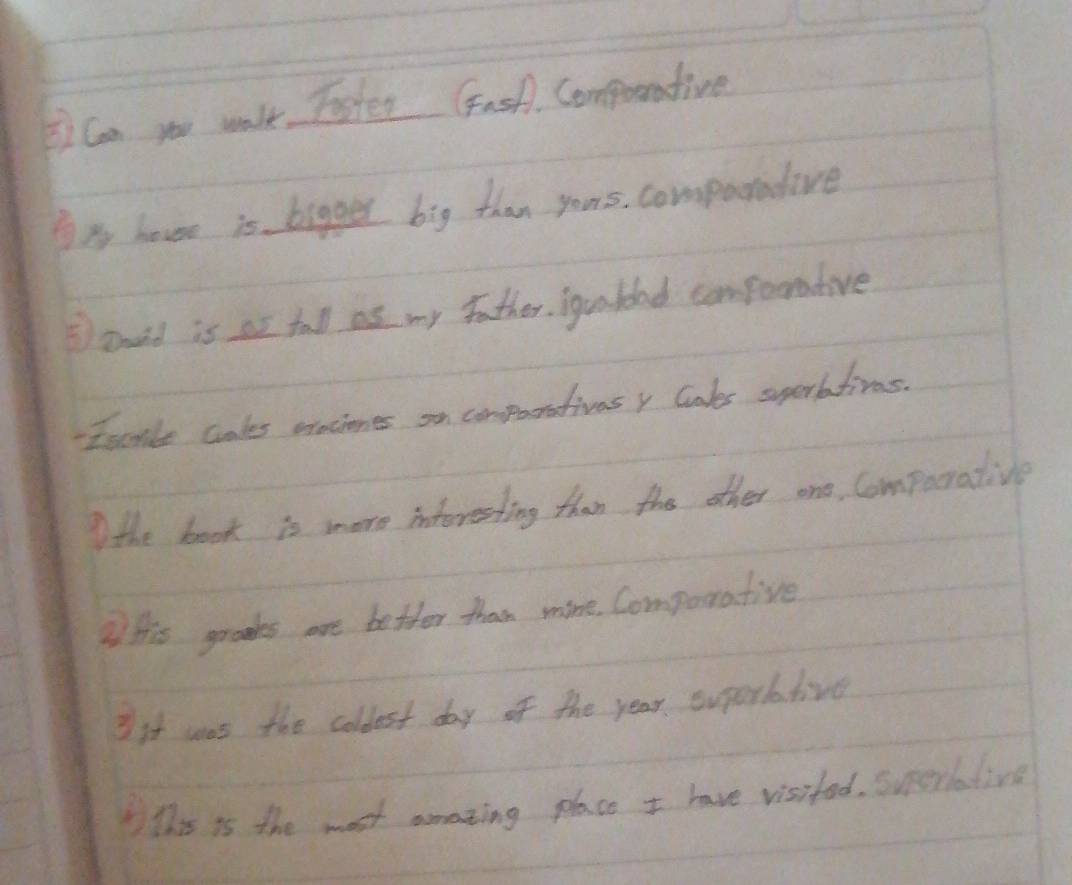 3) Can you walk Faster (Fast). Comparative
4) My house is bigger big than yours. Comparative
5) David is as tall as my father. igualdad comparative
- Escribe cuales oraciones son comparativas y Cuales superlativas.
1) the book is more interesting than the other one. Comparative
2) His grades are better than mine. Comparative
3) it was the coldest day of the year. superlative
4) This is the most amazing place I have visited. Superlative